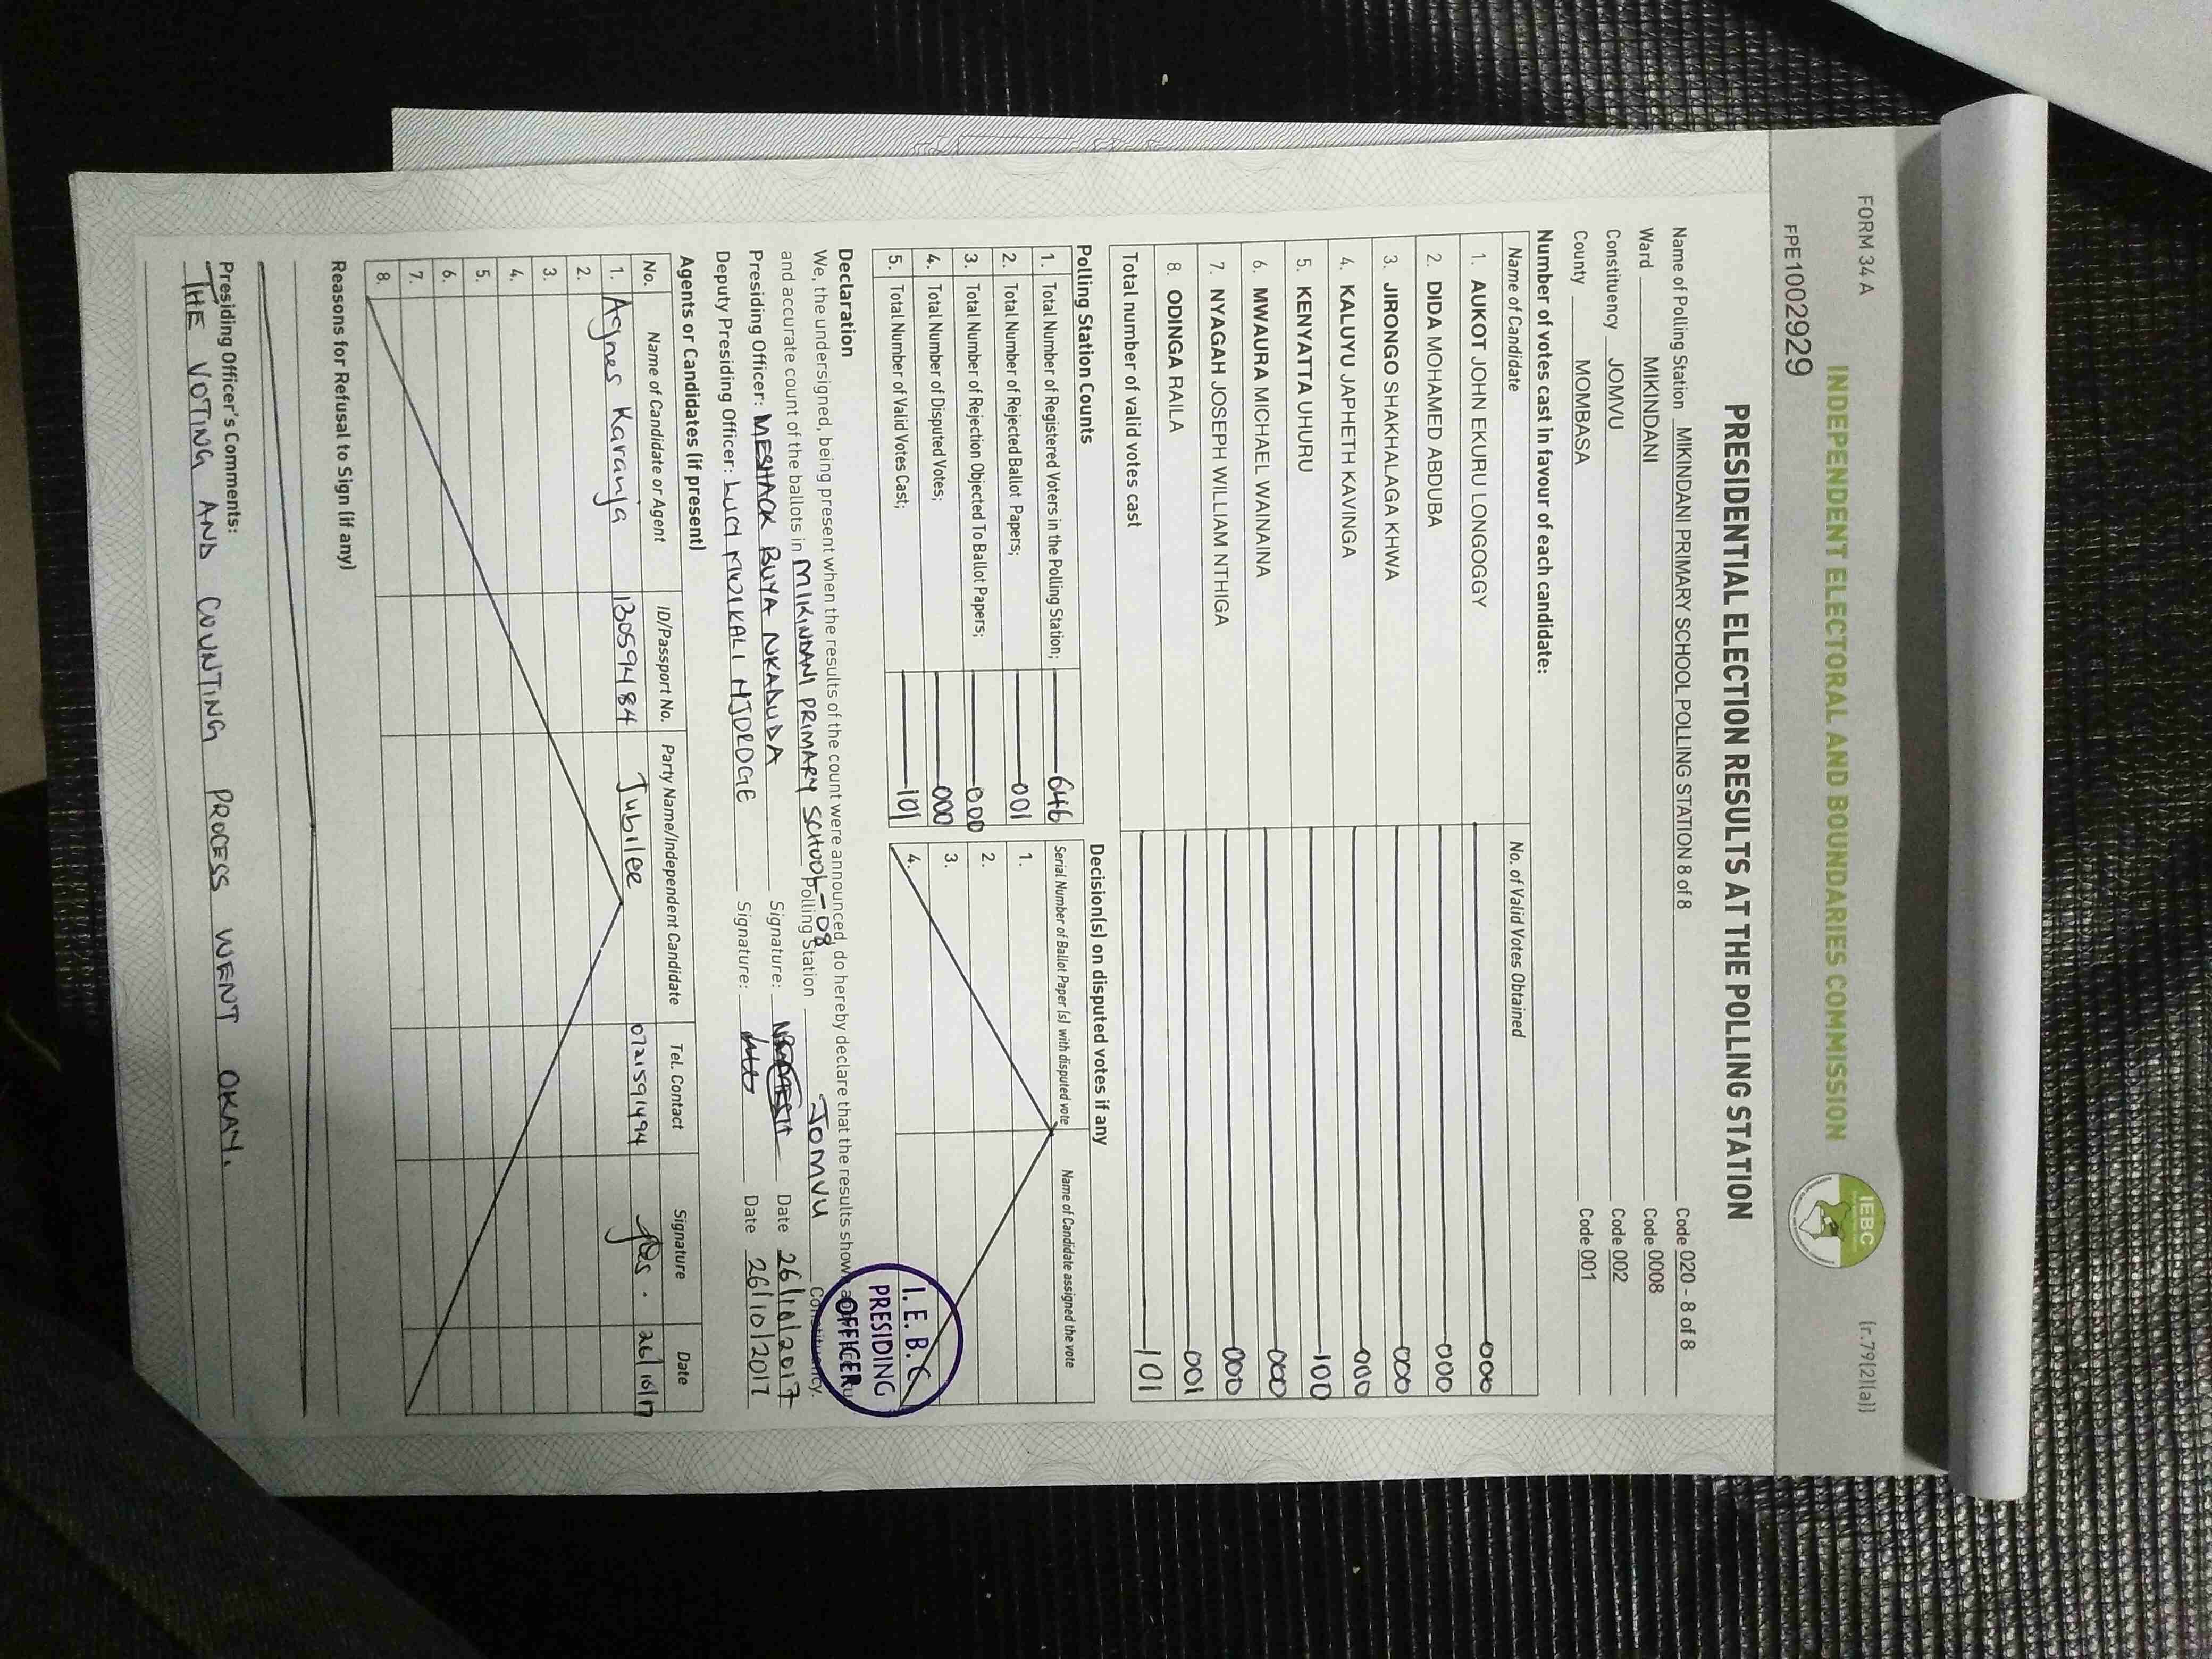 FORM 34 A
(r.79(2)(a))
INDEPENDENT ELECTORAL AND BOUNDARIES COMMISSION
IEBC
FPE1002929
PRESIDENTIAL ELECTION RESULTS AT THE POLLING STATION
Name of Polling Station MIKINDANI PRIMARY SCHOOL POLLING STATION 8 of 8 Code 020 - 8 of 8
Ward MIKINDANI Code 0008
Constituency JOMVU Code 002
County MOMBASA Code 001
Number of votes cast in favour of each candidate:
Name of Candidate No. of Valid Votes Obtained
1. AUKOT JOHN EKURU LONGOGGY 000
2. DIDA MOHAMED ABDUBA 000
3. JIRONGO SHAKHALAGA KHWA 000
4. KALUYU JAPHETH KAVINGA 000
5. KENYATTA UHURU 100
6. MWAURA MICHAEL WAINAINA 000
7. NYAGAH JOSEPH WILLIAM NTHIGA 000
8. ODINGA RAILA 001
Total number of valid votes cast 101
Polling Station Counts
1. Total Number of Registered Voters in the Polling Station; 646
2. Total Number of Rejected Ballot Papers; 001
3. Total Number of Rejection Objected To Ballot Papers; 000
4. Total Number of Disputed Votes; 000
5. Total Number of Valid Votes Cast; 101
Decision(s) on disputed votes if any
Serial Number of Ballot Paper (s) with disputed vote Name of Candidate assigned the vote
1.
2.
3.
4.
I. E. B. C
PRESIDING
OFFICER
Declaration
We, the undersigned, being present when the results of the count were announced, do hereby declare that the results show
and accurate count of the ballots in MIKINDANI PRIMARY SCHOOL-08 Polling Station JOMVU Constituency.
Presiding Officer: MESHACK BUYA NKADUDA Signature: Date 26/10/2017
Deputy Presiding Officer: Signature: Date 26/10/2017
Agents or Candidates (if present)
No. Name of Candidate or Agent ID/Passport No. Party Name/Independent Candidate Tel. Contact Signature Date
1. Agnes Karanja 13059484 Jubilee 0721591494 26/10/17
2.
3.
4.
5.
6.
7.
8.
Reasons for Refusal to Sign (if any)
Presiding Officer's Comments:
THE VOTING AND COUNTING PROCESS WENT OKAY.